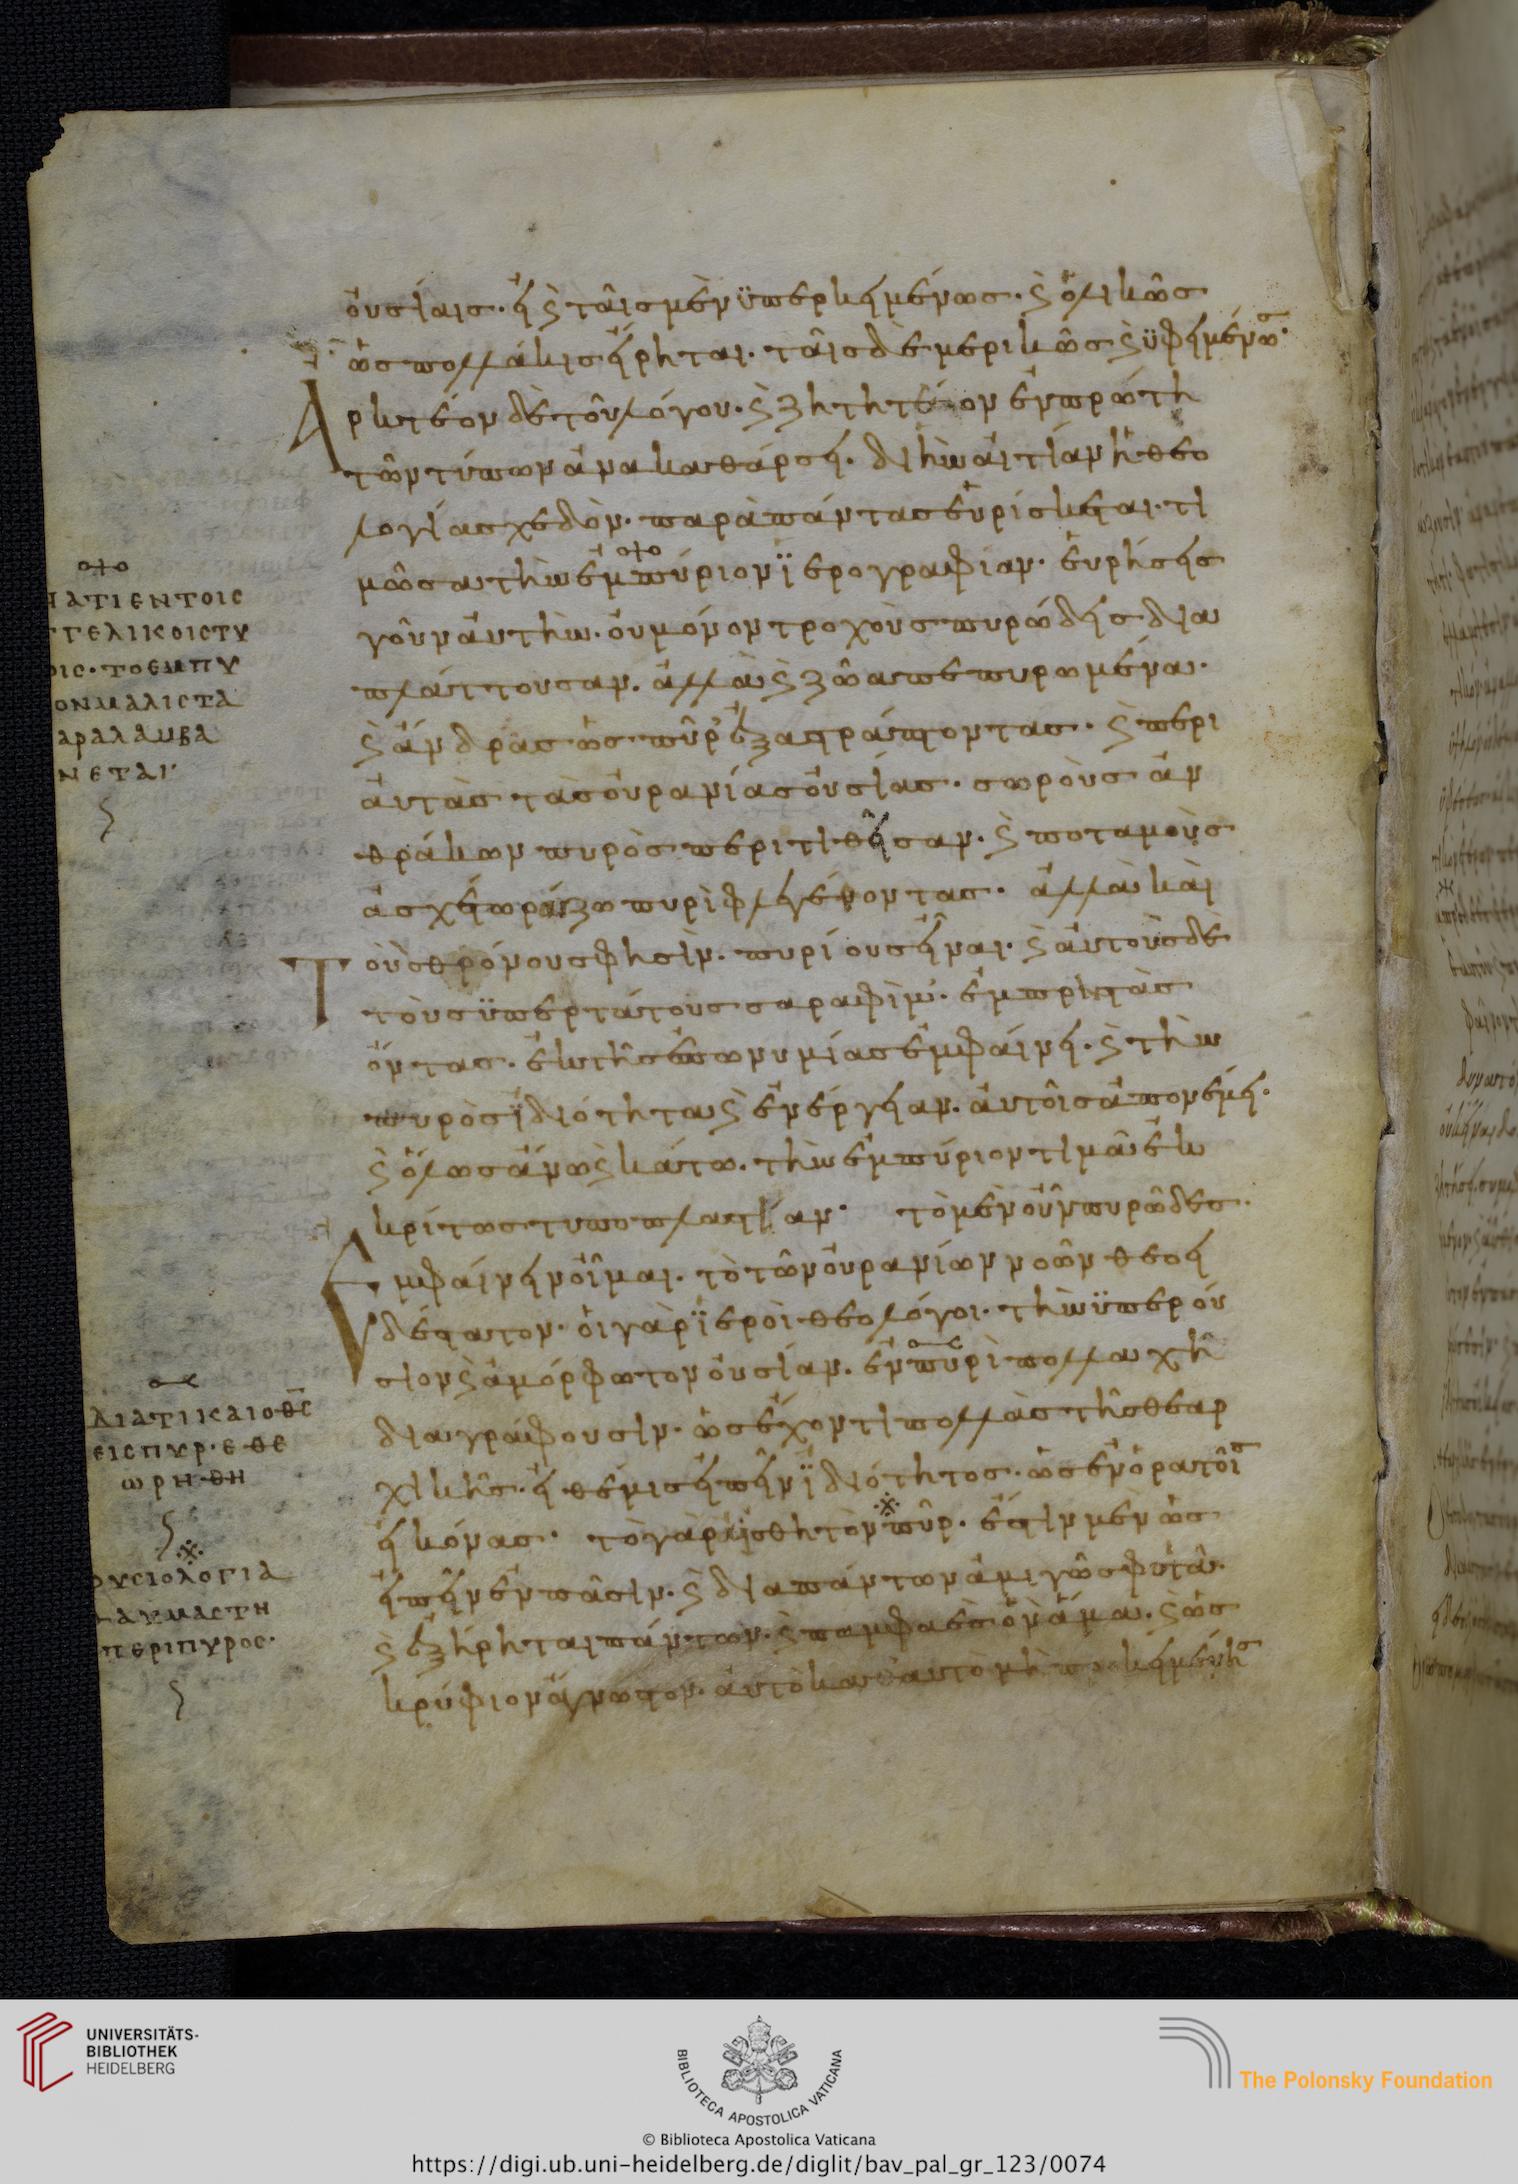 οὐσίαις· εἰ ϗ ταῖς μὲν ὑπερκειμένως· ϗ ὁλικῶς
ὡς πολλάκις εἴρηται· ταῖς δὲ μερικῶς ϗ ὑφειμένως·
Ἀρκτέον δὲ τοῦ λόγου· ϗ ζητητέον ἐν πρώτη
τῶν τύπων ἀνακαθάρσει· δι ἣν αἰτίαν ἡ θεο
λογία σχεδὸν· παρὰ πάντας εὑρίσκεται· τι
μῶσα τὴν ἐμπύριον ἱερογραφίαν· εὑρήσεις
γοῦν αὐτὴν· οὐ μόνον τροχοὺς πυρώδεις δια
πλάττουσαν· ἀλλὰ ϗ ζῶα πεπυρωμένα·
ϗ ἄνδρας ὡς πῦρ ἐξαστράπτοντας· ϗ περι
αὐτὰς τὰς οὐρανίας οὐσίας· σωροὺς ἀν
θράκων πυρὸς περιτιθεῖσαν· ϗ ποταμοὺς
ἀσχέτω ροίζω πυρὶ φλεγέθοντας· ἀλλὰ κὰι
Τοὺς θρόνους φησὶν· πυρίους εἶναι· ϗ αὐτοὺς δὲ
τοὺς ὑπερτάτους σαραφὶμ· ἐμπρηστὰς
ὄντας· ἐκ τῆς ἐπωνυμίας ἐμφαίνει· ϗ τὴν
πυρὸς ἰδιότητα ϗ ἐνέργειαν· αὐτοῖς ἀπονέμει·
ϗ ὅλως ἄνω ϗ κάτω· τὴν ἐμπύριον τιμᾶ ἐκ
κρίτως τυποπλαστίαν· τὸ μὲν οὖν πυρῶδες·
Ἐμφαίνειν οἶμαι· τὸ τῶν οὐρανίων νοῶν θεοει
δέστατον· οἱ γὰρ ἱεροὶ θεολόγοι· τὴν ὑπερού
σιον ϗ ἀμόρφωτον οὐσίαν· ἐν πυρὶ πολλαχῆ
διαγράφουσιν· ὡς ἔχοντι πολλὰς τῆς θεαρ
χικῆς· εἰ θέμις εἰπεῖν ἰδιότητος· ὡς ἐν ὁρατοῖς
εἰκόνας· τὸ γὰρ αἰσθητὸν πῦρ· ἔστιν μὲν ὡς
εἰπεῖν ἐν πᾶσιν· ϗ δια πάντων ἀμιγῶς φοιτᾶ·
ϗ ἐξήρηται πάντων· ϗ παμφαὲς ὂν ἅμα· ϗ ὡς
κρύφιον ἄγνωστον· αὐτὸ καθαυτὸ μὴ προκειμένης
ΑΤΙ ΕΝ ΤΟΙΣ
ΓΕΛΙΚΟΙΣ ΤΥ
ΟΙΣ· ΤΟ ΕΜΠΥ
ΟΝ ΜΑΛΙΣΤΑ
ΑΡΑΛΑΜΒΑ
ΝΕΤΑΙ
ΔΙΑΤΙ ΚΑΙ Ο ΘΣ
ΕΙΣ ΠΥΡ· ΕΘΕ
ΩΡΗΘΗ
ΦΥΣΙΟΛΟΓΙΑ
ΘΑΥΜΑΣΤΗ
ΠΕΡΙ ΠΥΡΟΣ·
UNIVERSITÄTS-
BIBLIOTHEK
HEIDELBERG
BIBLIOTECA APOSTOLICA VATICANA
The Polonsky Foundation
© Biblioteca Apostolica Vaticana
https://digi.ub.uni-heidelberg.de/diglit/bav_pal_gr_123/0074